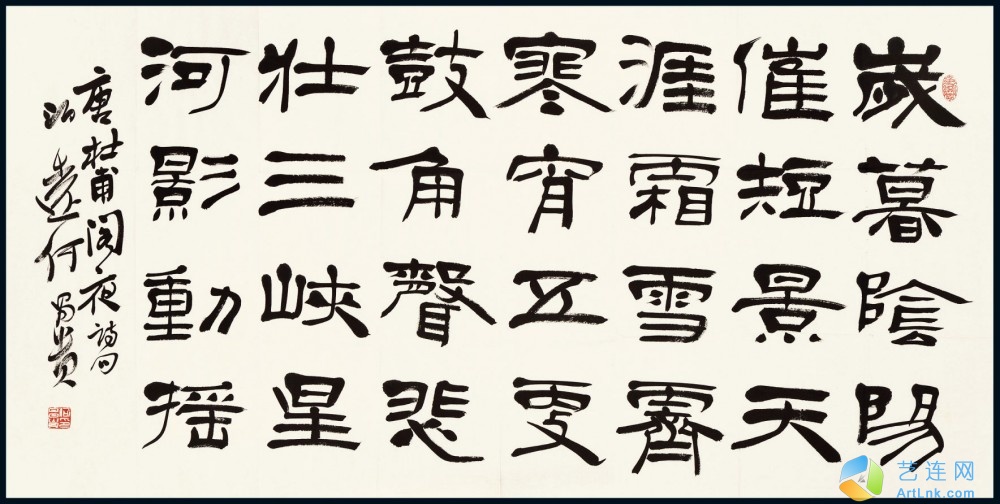 歲暮陰陽
催短景天
涯霜雪霽
寒宵五更
鼓角聲悲
壯三峽星
河影動摇
唐杜甫阁夜詩句
何昌贵
艺连网
ArtLnk.com